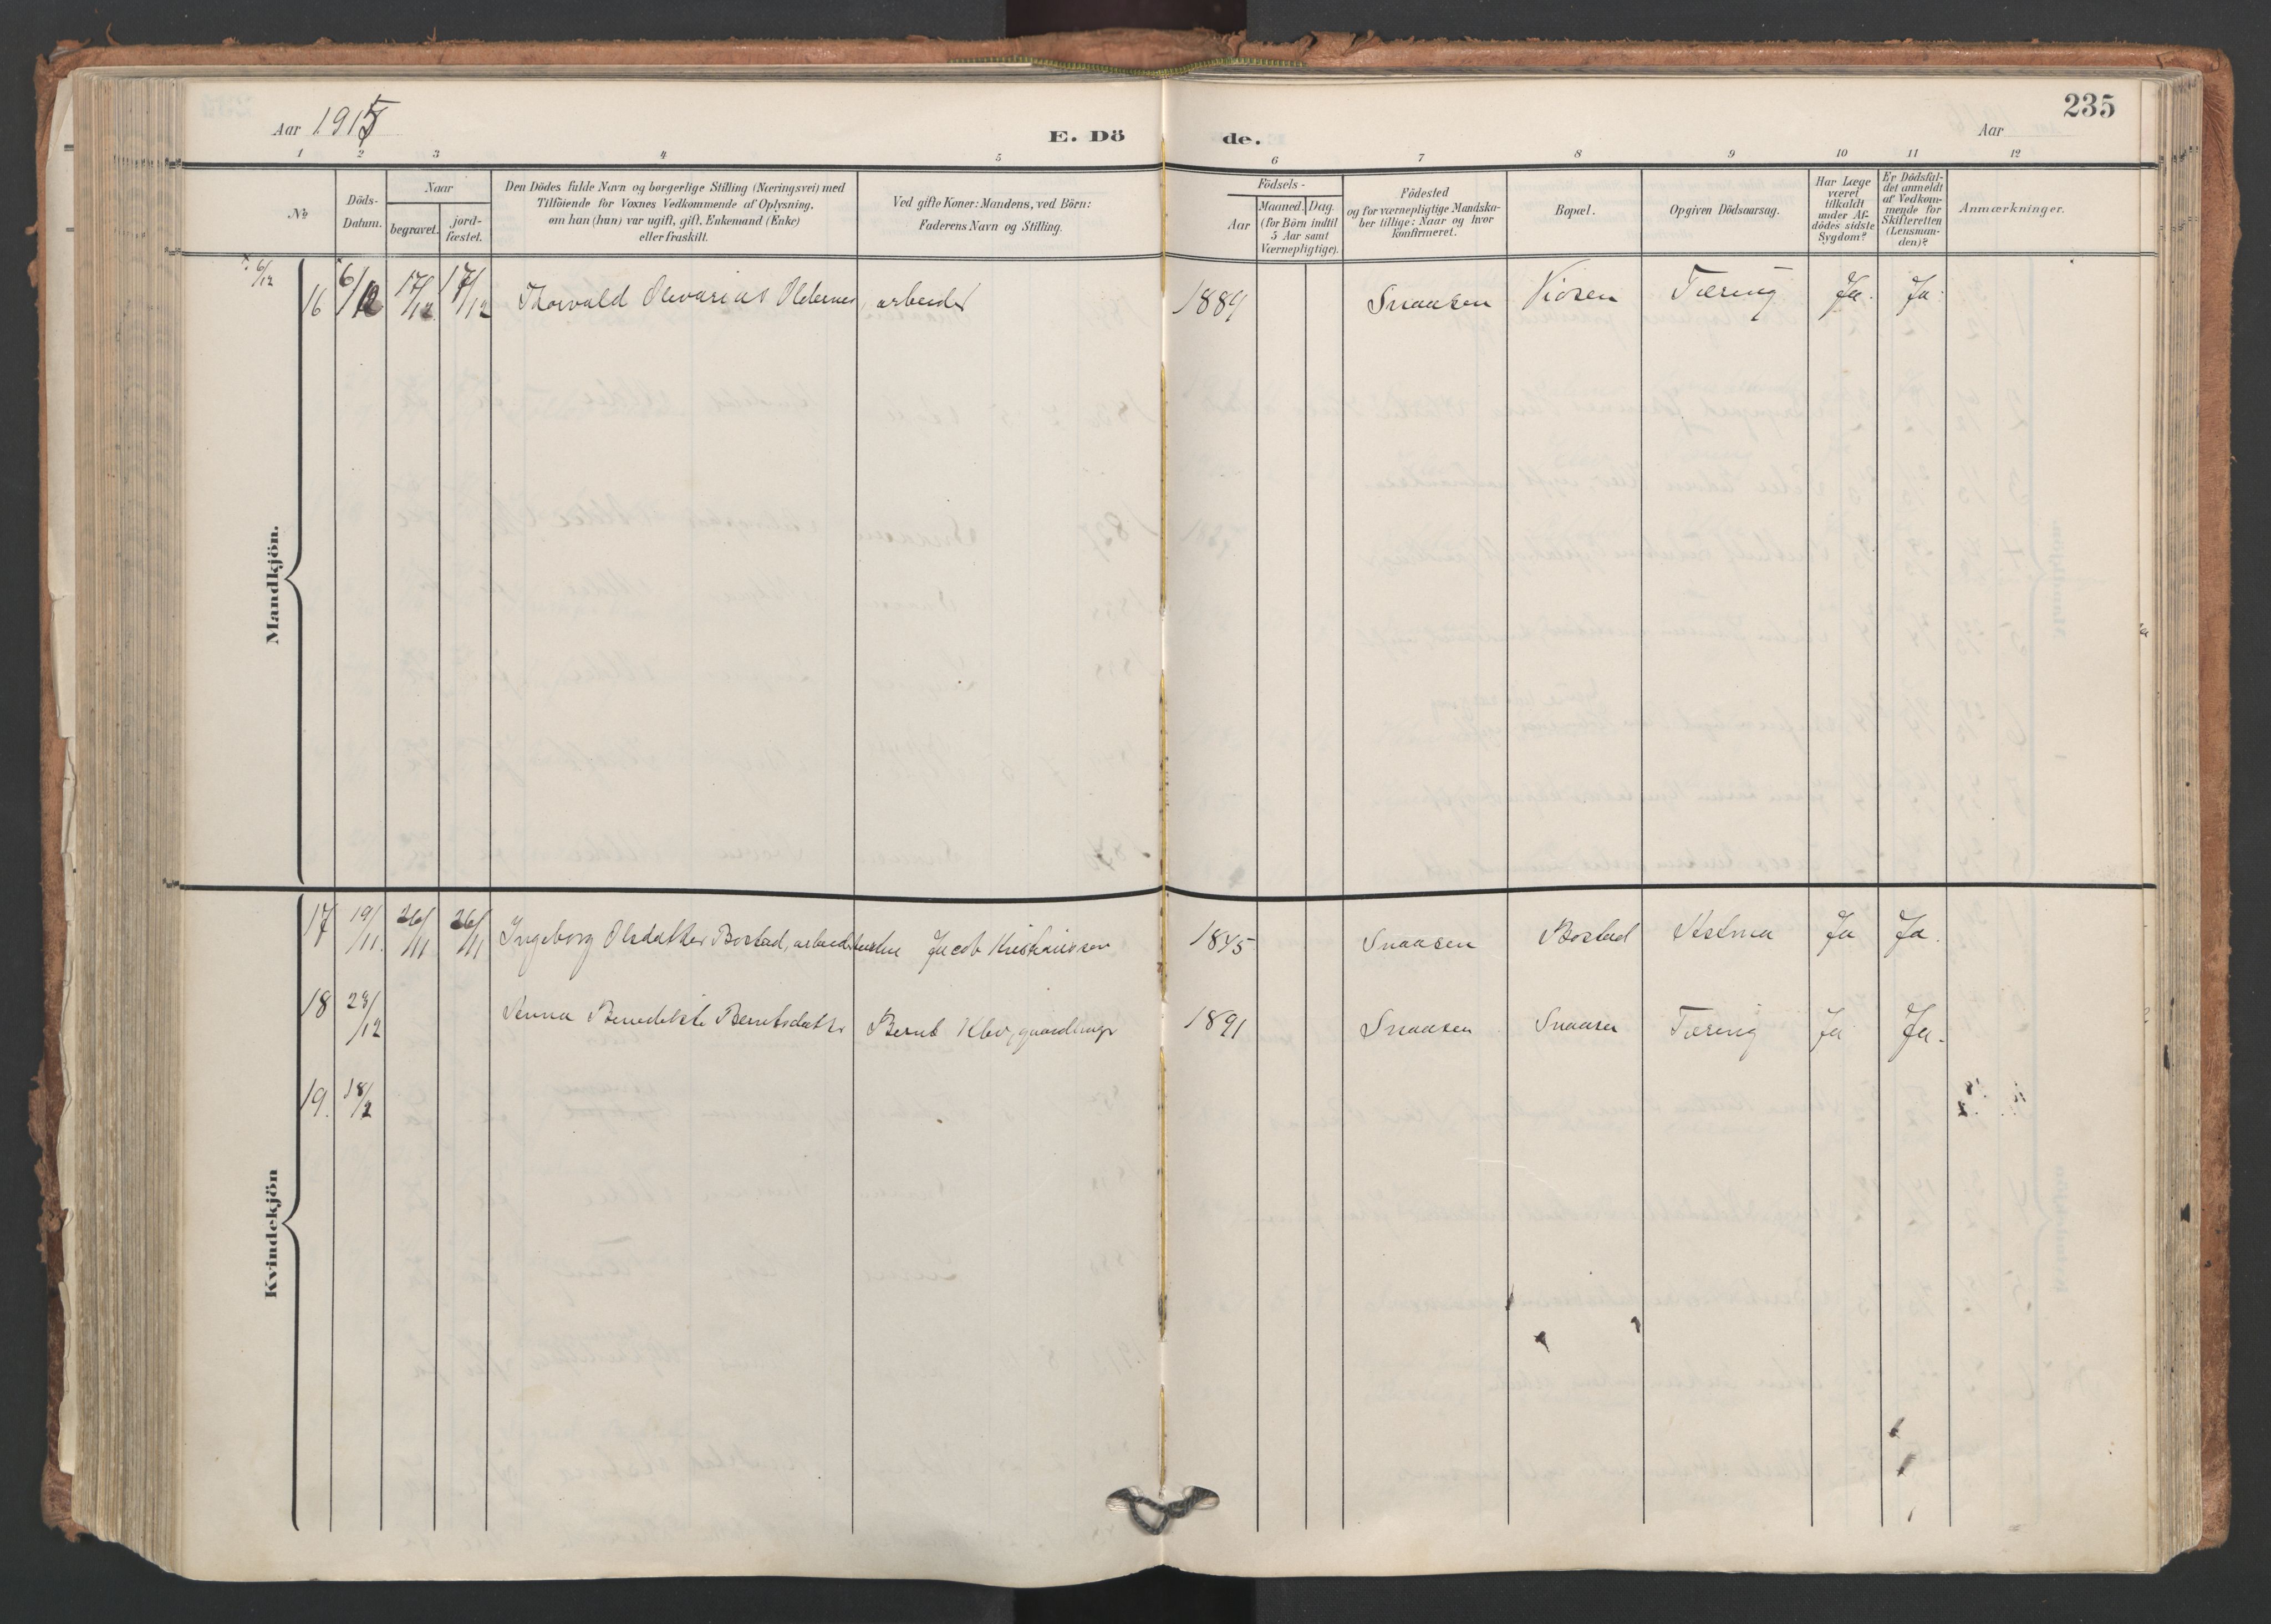 Aar 1915
E. Dö de.
Aar
235
1 2 3 4 5 6 7 8 9 10 11 12
№
Döds-
Datum.
Naar
begravet.
jord-
fæstet.
Den Dödes fulde Navn og borgerlige Stilling (Næringsvei) med
Tilföiende for Voxnes Vedkommende af Oplysning,
om han (hun) var ugift, gift, Enkemand (Enke)
eller fraskilt.
Ved gifte Koner: Mandens, ved Börn:
Faderens Navn og Stilling.
Födsels-
Aar
Maaned. Dag.
(for Börn indtil
5 Aar samt
Værnepligtige).
Födested
og for værnepligtige Mandska-
ber tillige: Naar og hvor
konfirmeret.
Bopæl.
Opgiven Dödsaarsag.
Har Læge
været
tilkaldt
under Af-
dödes sidste
Sygdom?
Er Dödsfal-
det anmeldt
af Vedkom-
mende for
Skifteretten
(Lensman-
den)?
Anmærkninger.
Mandkjön.
6/12
16 6/12 17/12 17/12 Thorvald Olevarias Oldernes, arbeider 1889 Snaasen Viosen Tæring Ja. Ja.
Kvindekjön
17 19/11. 26/11 26/11 Ingeborg Olsdatter Bostad, Jacob Kristianssen 1845 Snaasen Bostad Astma Ja Ja.
18 23/12 Anna Benedikte Berntsdatter Bernt Klev, gaardbruger 1891 Snaasen Snaasen Tæring Ja Ja.
19. 18/2